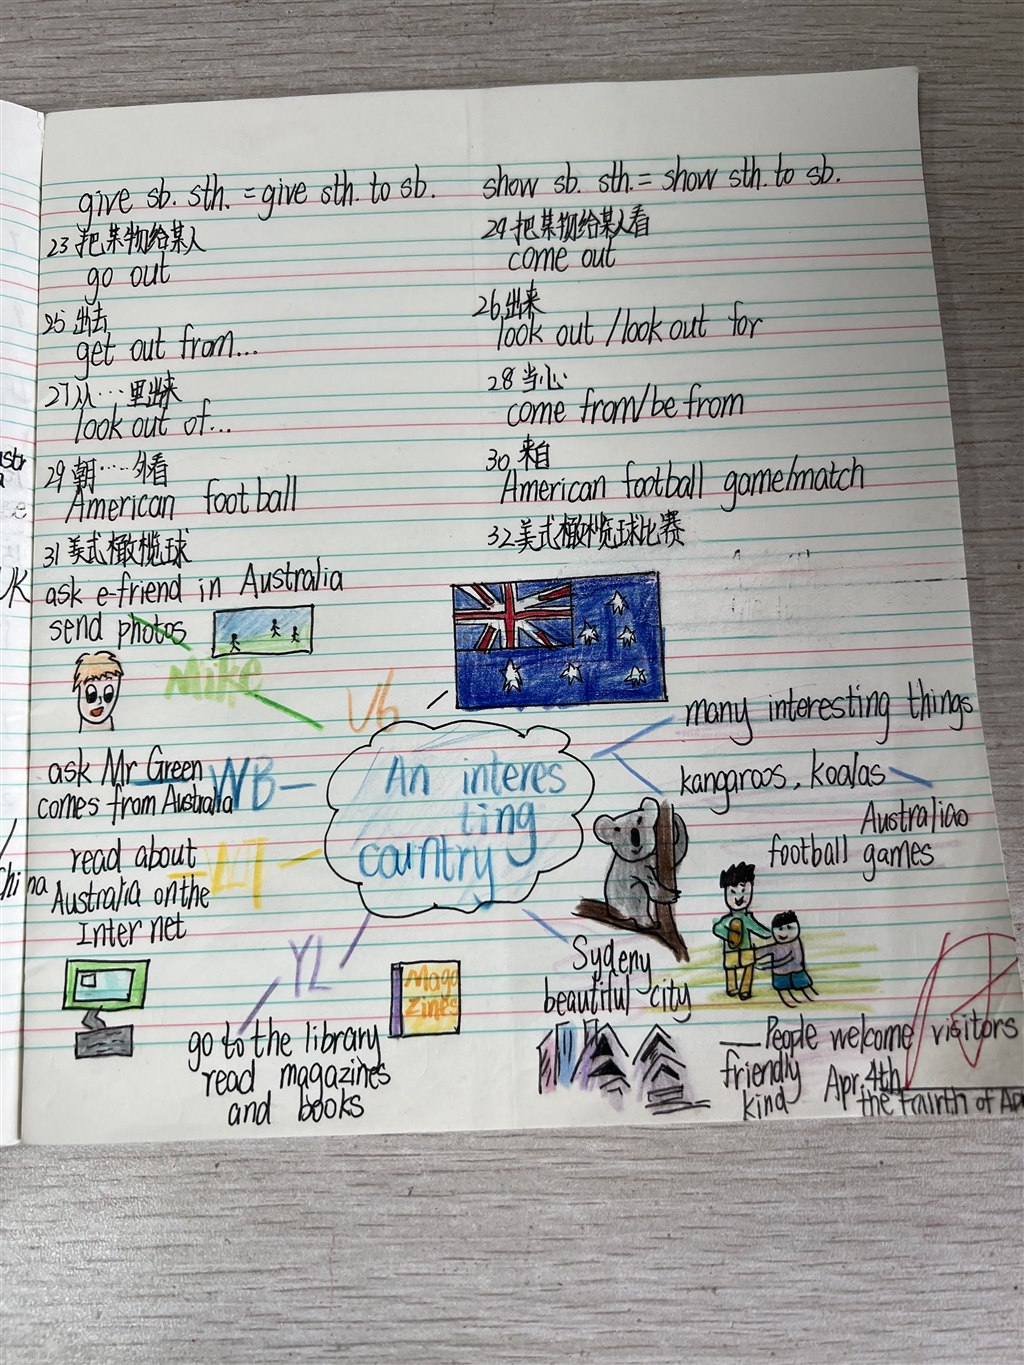 give sb. sth. = give sth. to sb.
show sb. sth. = show sth. to sb.
23 把某物给某人
24 把某物给某人看
go out
come out
25 出去
26 出来
get out from...
look out / look out for
27 从……里出来
28 当心
look out of...
come from/be from
29 朝……外看
30 来自
American football
American football game/match
31 美式橄榄球
32 美式橄榄球比赛
ask e-friend in Australia
send photos
Mike
U6
many interesting things
ask Mr Green
comes from Australia
WB
An interes
ting
country
kangaroos, koalas
Australiao
football games
read about
Australia on the
Internet
YL
Maga
zines
go to the library
read magazines
and books
Sydeny
beautiful city
People welcome visitors
friendly
kind
Apr. 4th
the Fourth of Ap
UK
China